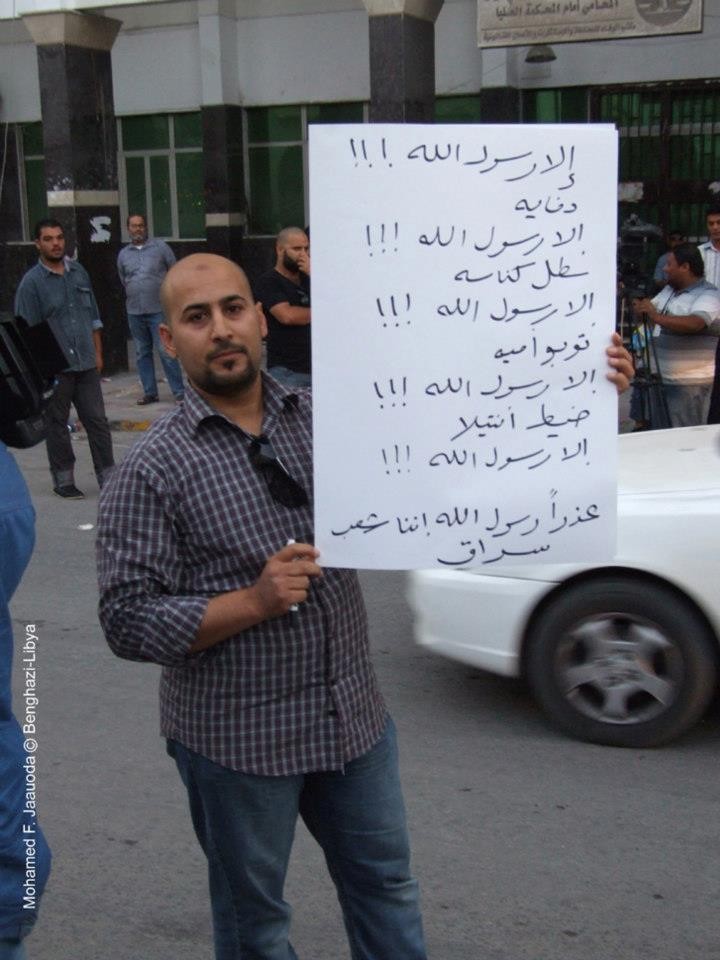 المحامي أمام المحكمة العليا
إلا رسول الله !!!
دفايه
إلا رسول الله !!!
سطل كناسه
إلا رسول الله !!!
توبو أميه
إلا رسول الله !!!
خيط أنتيلا
إلا رسول الله !!!
عذراً رسول الله إننا شعب
سراق
Mohamed F. Jaauoda © Benghazi-Libya